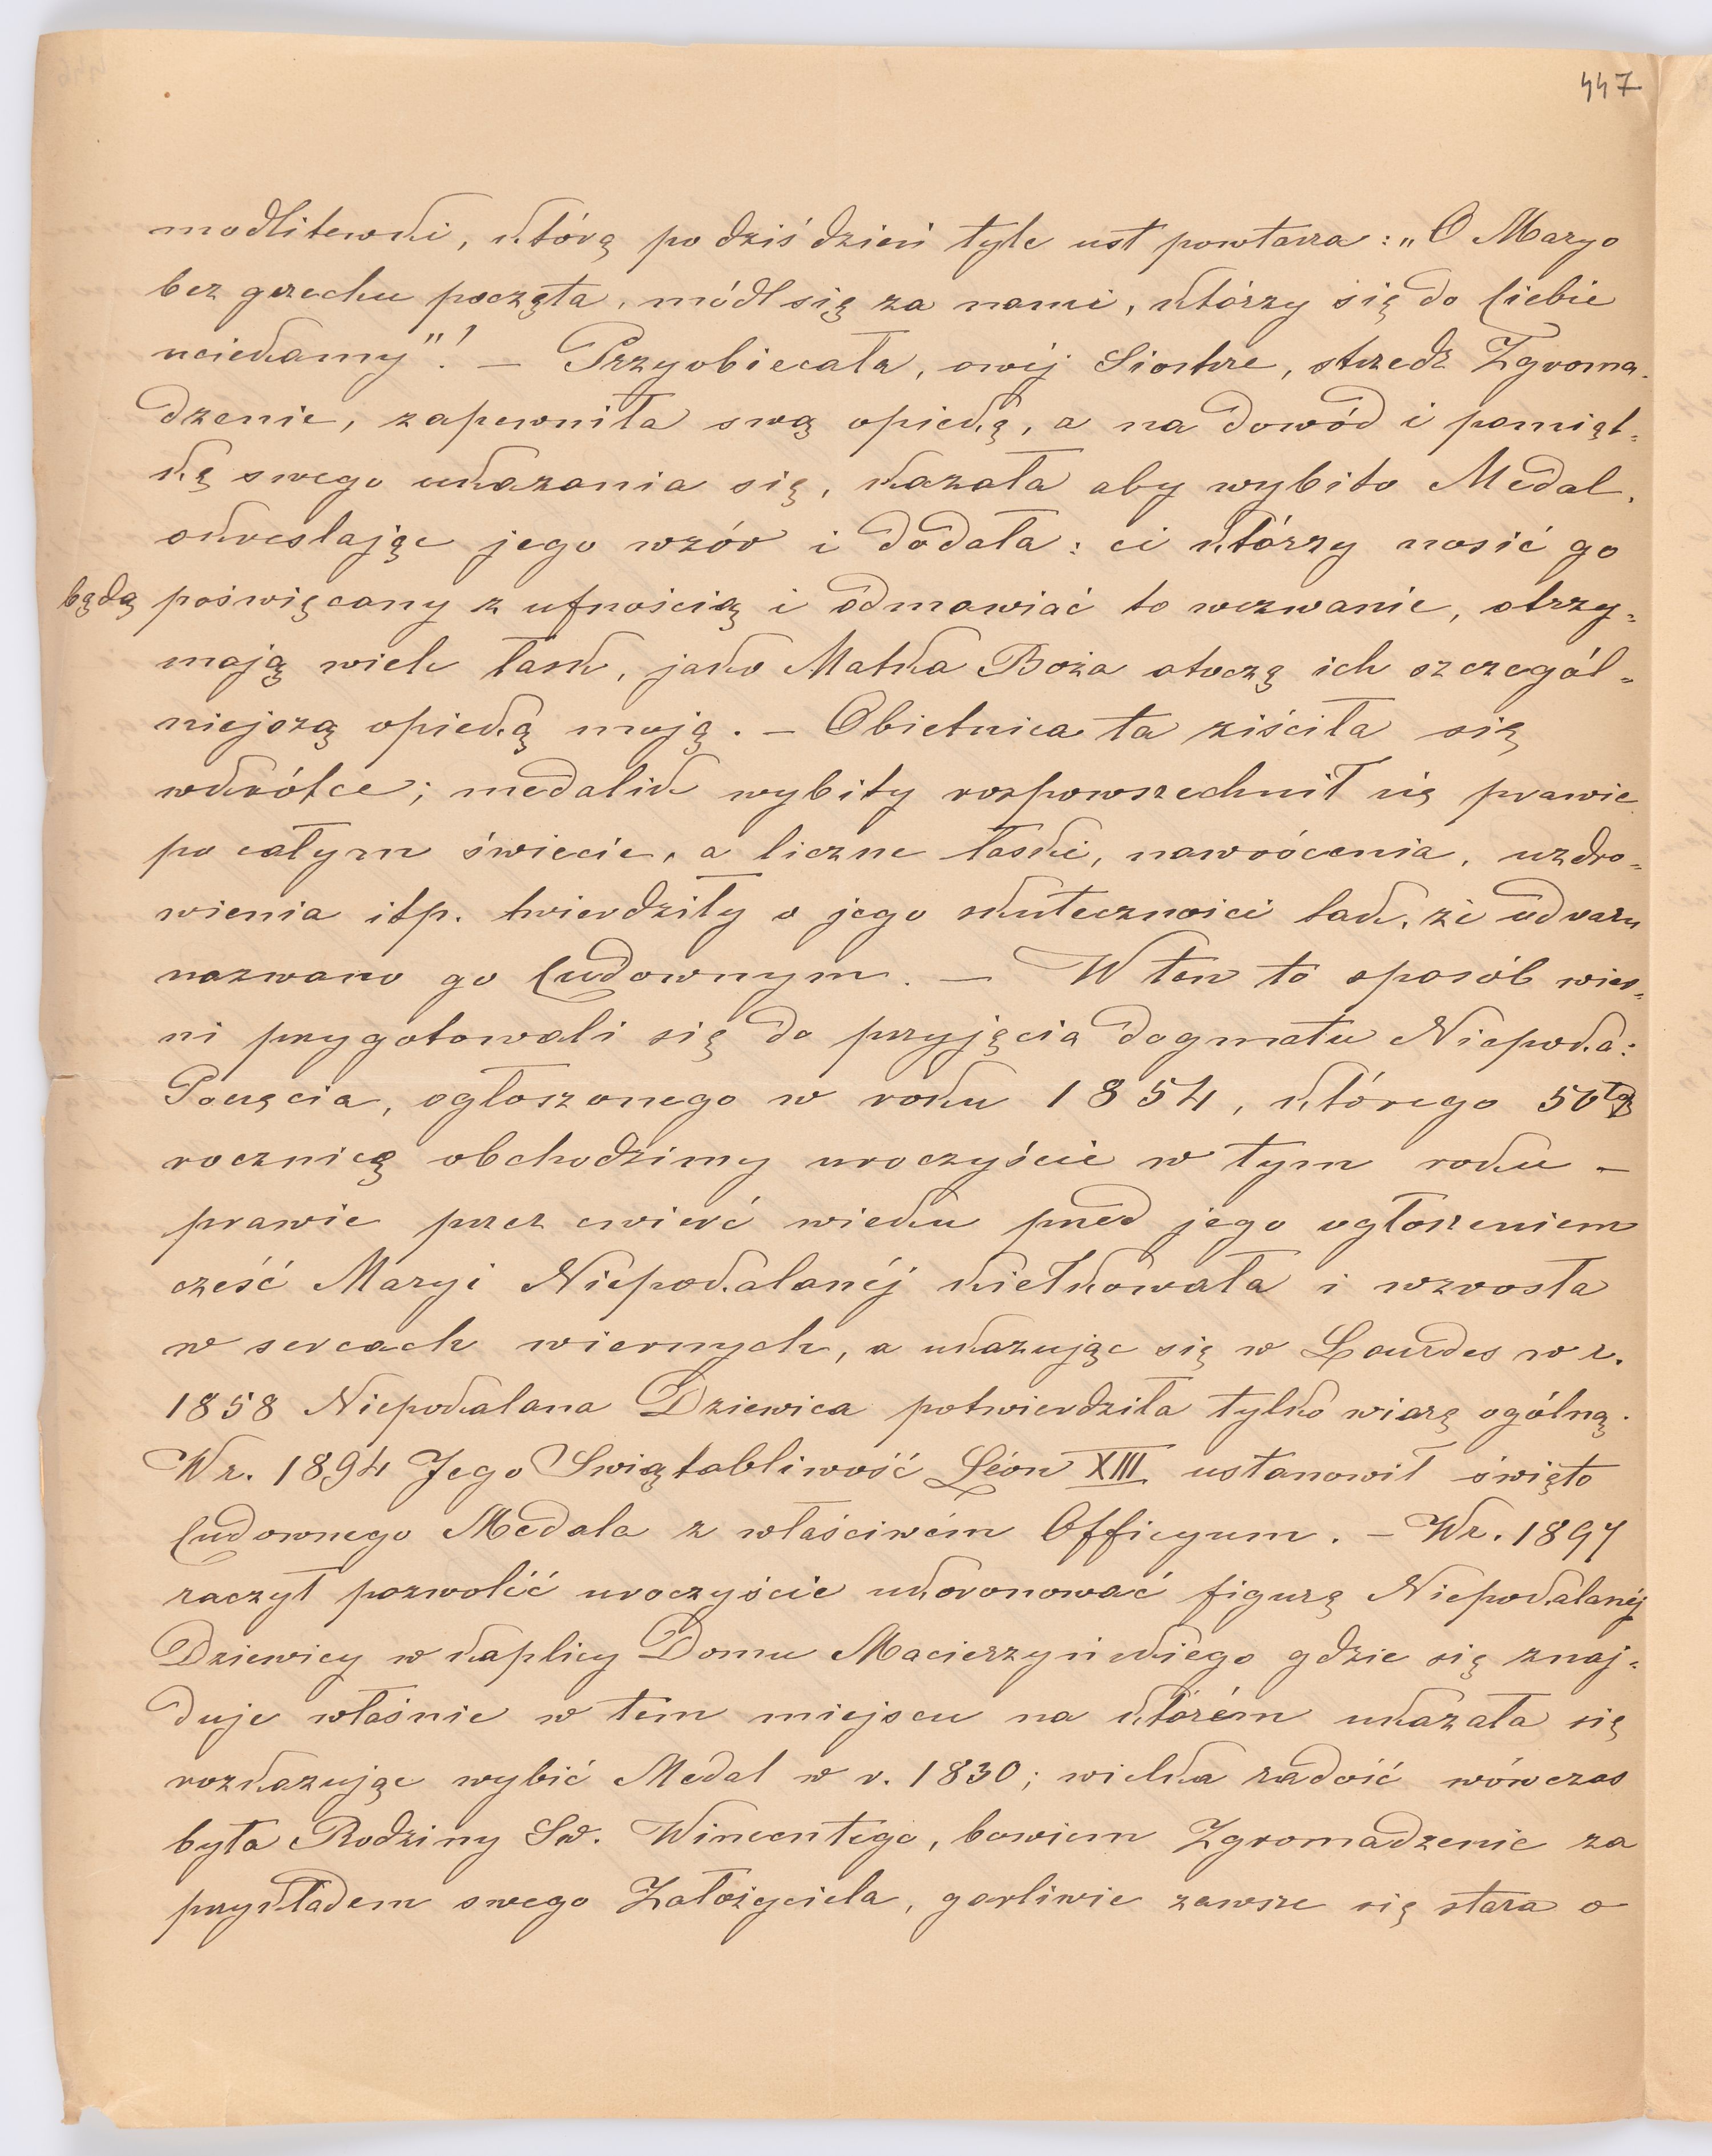 447
modlitewki, którą po dziś dzień tyle ust powtarza: „O Maryo
bez grzechu poczęta, módl się za nami, którzy się do Ciebie
uciekamy"! — Przyobiecała, owéj Siostrze, strzedz Zgroma-
dzenie, zapewniła swą opieką, a na dowód i pamiąt-
kę swego ukazania się, kazała aby wybito Medal,
określając jego wzór i dodała: ci którzy nosić go
będą poświęcany z ufnością i odmawiać to wezwanie, otrzy-
mają wiele łask, jako Matka Boża otoczę ich szczegól-
niejszą opieką moją. — Obietnica ta ziściła się
wkrótce; medalik wybity rozpowszechnił się prawie
po całym świecie, a liczne łaski, nawrócenia, uzdro-
wienia itp. twierdziły o jego skuteczności tak, że od razu
nazwano go Cudownym. — W ten to sposób wier-
ni przygotowali się do przyjęcia dogmatu Niepoka:
Poczęcia, ogłoszonego w roku 1854, którego 50tą
rocznicę obchodzimy uroczyście w tym roku —
prawie przez cwierć wieku przed jego ogłoszeniem
cześć Maryi Niepokalanéj kiełkowała i wzrosła
w sercach wiernych, a ukazując się w Lourdes w r.
1858 Niepokalana Dziewica potwierdziła tylko wiarę ogólną.
W r. 1894 Jego Swiątobliwość Léon XIII ustanowił święto
Cudownego Medala z właściwém Officyum. — W r. 1897
raczył pozwolić uroczyście ukoronować figurę Niepokalanéj
Dziewicy w kaplicy Domu Macierzyńskiego gdzie się znaj-
duje właśnie w tem miejscu na którém ukazała się
rozkazując wybić Medal w r. 1830; wielka radość wówczas
była Rodziny Sw. Wincentego, bowiem Zgromadzenie za
przykładem swego Założyciela, gorliwie zawsze się stara o